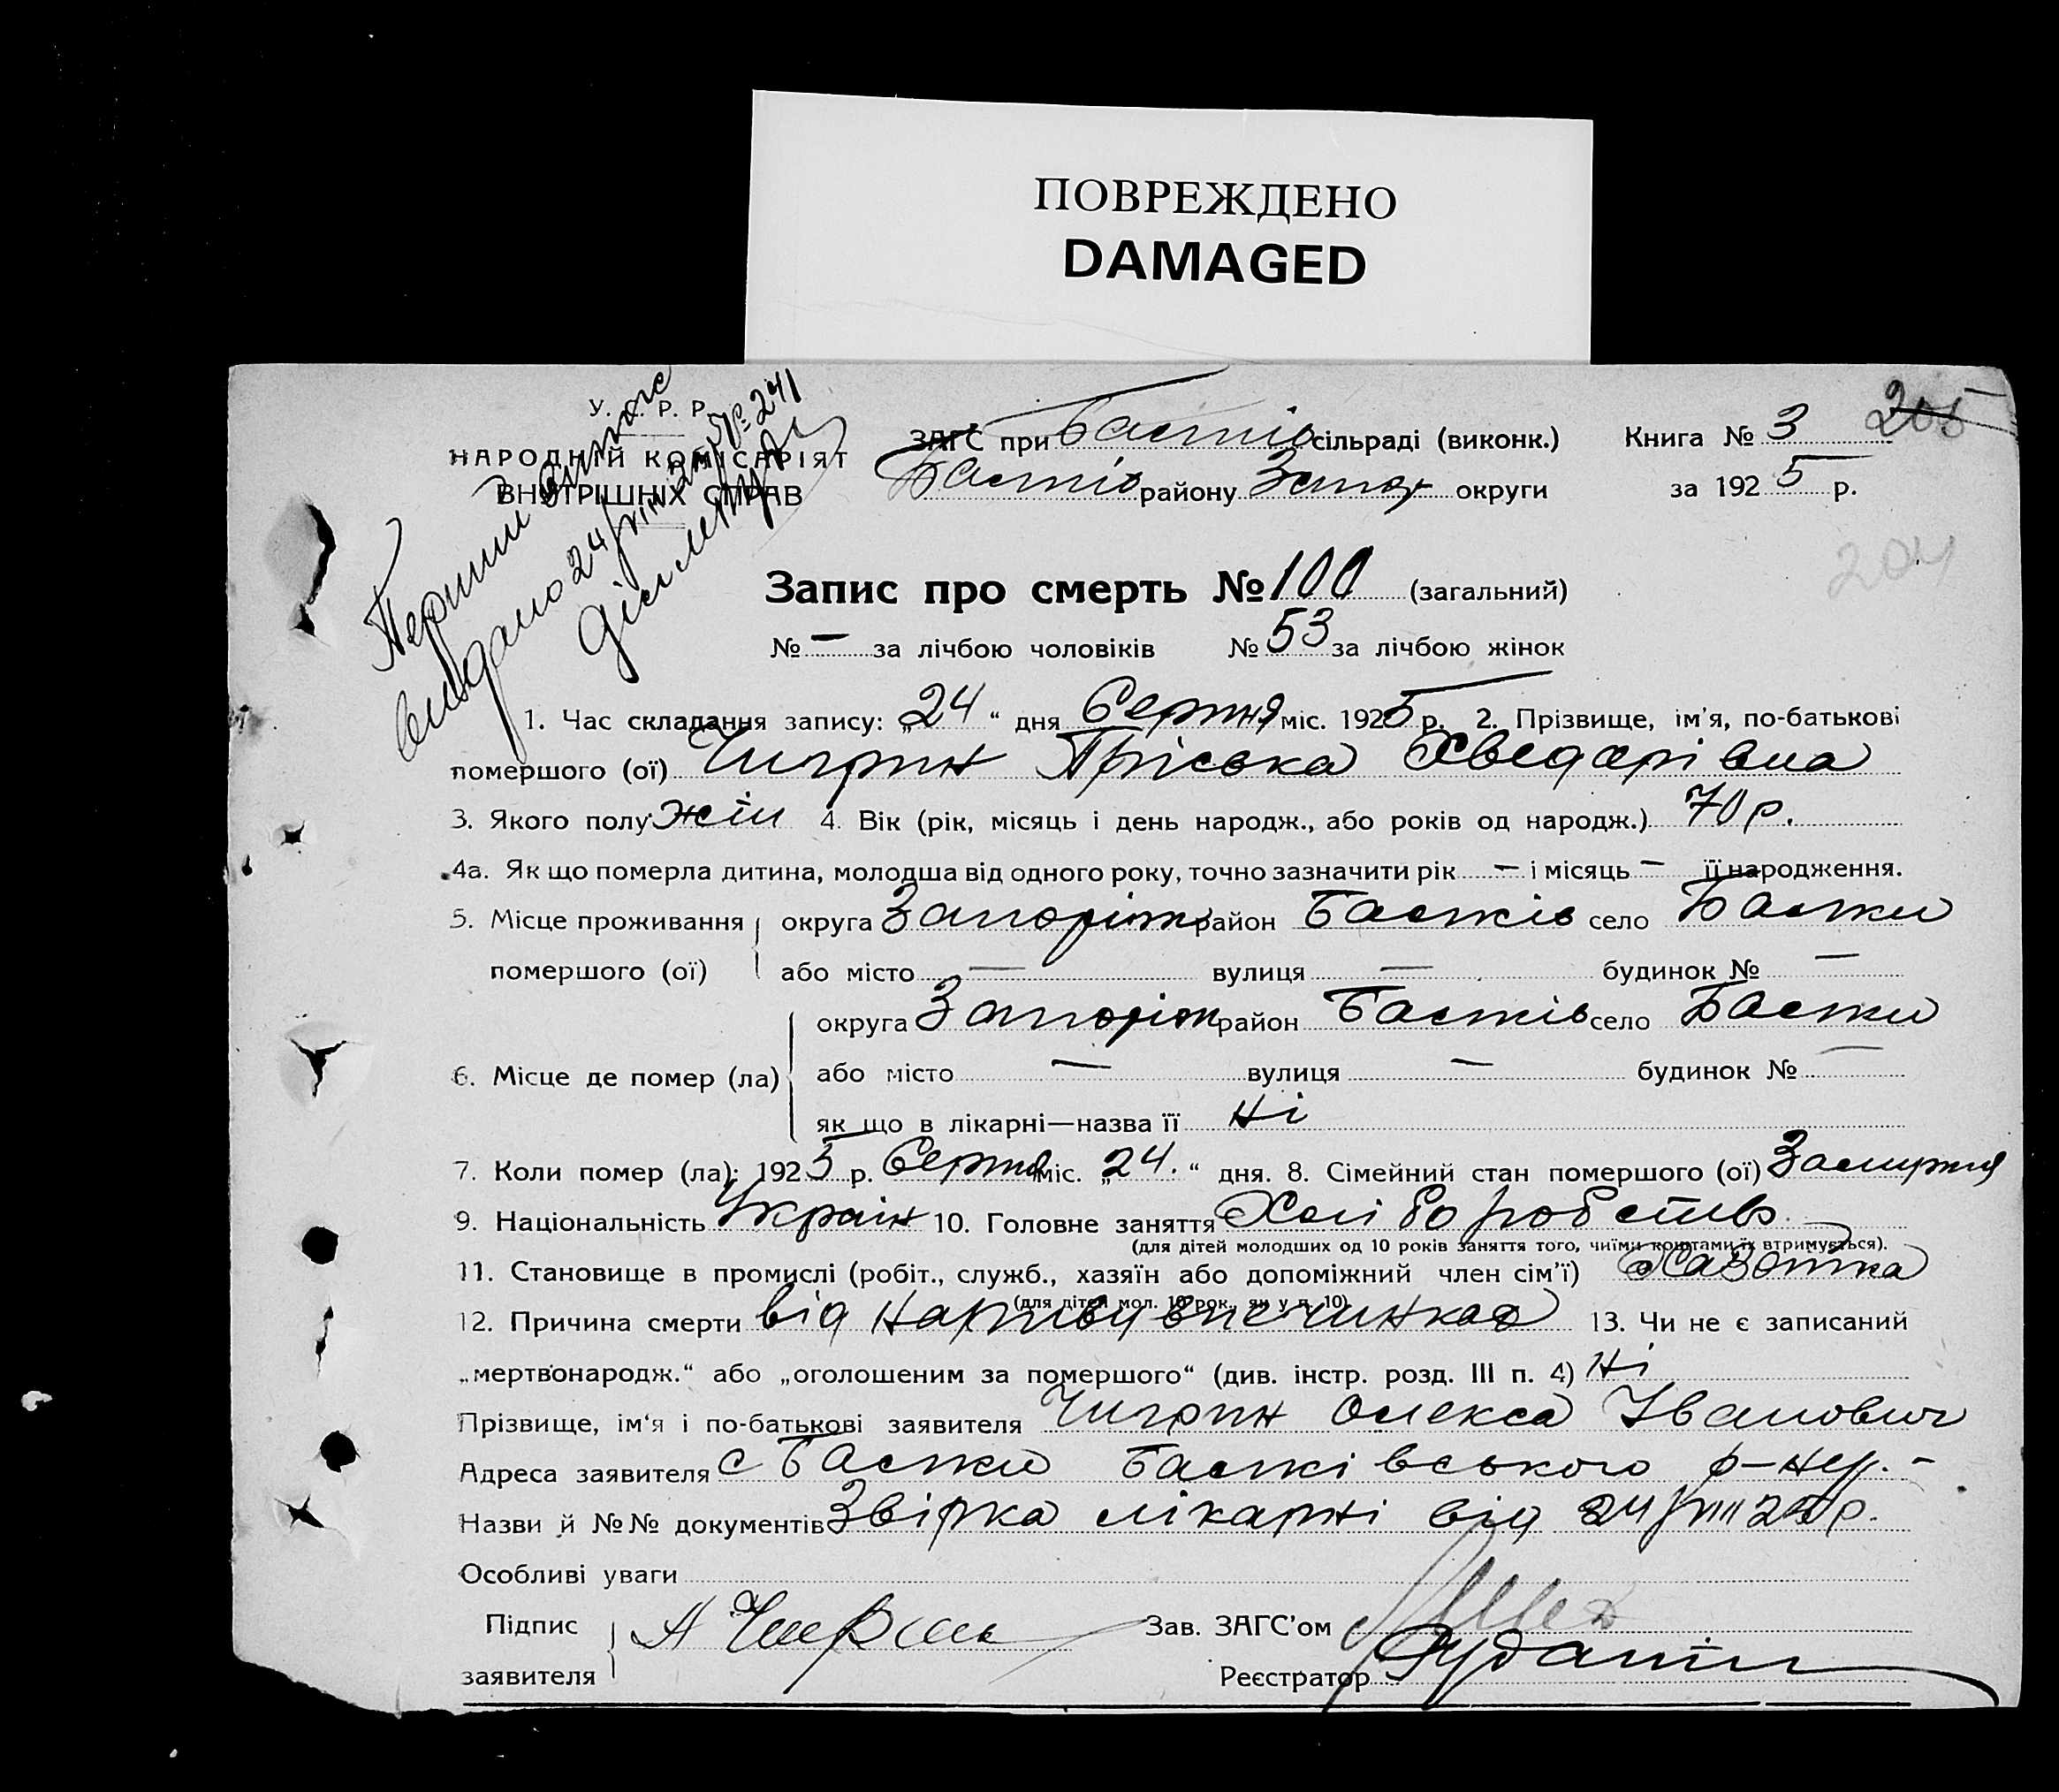 ПОВРЕЖДЕНО
DAMAGED
У. С. Р. Р.
НАРОДНІЙ КОМІСАРІЯТ
ВНУТРІШНІХ СПРАВ
Перший випис
видано 24/VIII 25 р № 241
ЗАГС при Бастків сільраді (виконк.) Книга № 3 205
Бастків району Запор округи за 1925 р.
204
Запис про смерть № 100 (загальний)
№ — за лічбою чоловіків № 53 за лічбою жінок
1. Час складання запису: „24“ дня Серпня міс. 1925 р. 2. Прізвище, ім'я, по-батькові
помершого (ої) Чигрин Пріська Хведорівна
3. Якого полу жін 4. Вік (рік, місяць і день народж., або років од народж.) 70 р.
4а. Як що померла дитина, молодша від одного року, точно зазначити рік — і місяць — її народження.
5. Місце проживання округа Запоріж район Бастків село Бастки
помершого (ої) або місто — вулиця — будинок № —
округа Запоріж район Бастків село Бастки
6. Місце де помер (ла) або місто — вулиця — будинок № —
як що в лікарні—назва її Ні
7. Коли помер (ла): 1925 р. Серпня міс. „24.“ дня. 8. Сімейний стан помершого (ої) Замужня
9. Національність Україн 10. Головне заняття Хліборобство
(для дітей молодших од 10 років заняття того, чиїми коштами їх втримується).
11. Становище в промислі (робіт., служб., хазяїн або допоміжний член сім'ї) Хазяйка
(для дітей мол. 10 рок., як у п. 10)
12. Причина смерти від нариву в печинках 13. Чи не є записаний
„мертвонародж.“ або „оголошеним за помершого“ (див. інстр. розд. III п. 4) Ні
Прізвище, ім'я і по-батькові заявителя Чигрин Олекса Іванович
Адреса заявителя с Бастки Бастківського р-ну. -
Назви й №№ документів Звірка лікарні від 24/VIII 25 р.
Особливі уваги
Підпис А Чигрин Зав. ЗАГС'ом
заявителя Реєстратор